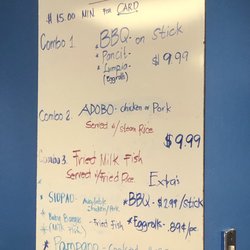 $15.00 MIN For CARD
Combo 1
*BBQ on Stick
*Pancit
*Lumpia
(Eggrolls)
$9.99
Combo 2 ADOBO - chicken or Pork
Served w/ steam Rice
$9.99
Combo 3 Fried Milk Fish
Served w/ Fried Rice
Extras
*SIOPAO - Available
Chicken/Pork
*BBQ - $2.99/stick
(Milk Fish) - Fried Fish
*Eggrolls - .89¢/pc
*Pampano -